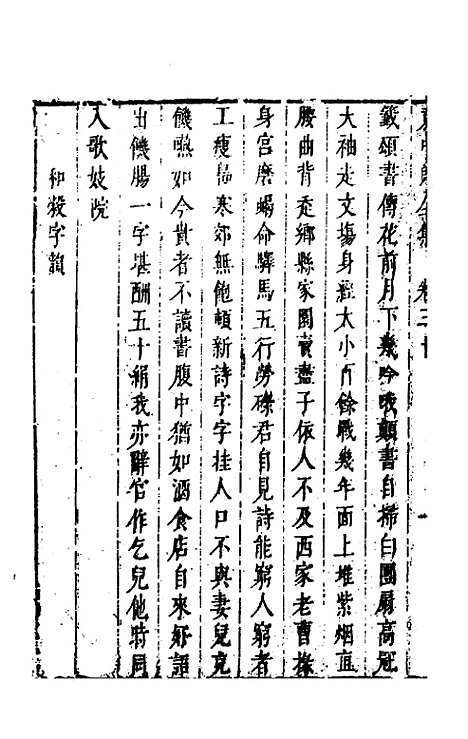 袁中郎全集 卷三十
籤頌書傳花前月下幾吟哦顛書自掃白團扇高冠
大袖走文塲身經大小百餘戰幾年面上堆紫烟直
腰曲背走鄉縣家園賣盡子依人不及西家老曹掾
身宫磨蝎命驛馬五行勞碌君自見詩能窮人窮者
工瘦島寒郊無飽頓新詩字字挂人口不與妻兒克
饑嚥如今貴者不讀書腹中猶如酒食店自來好語
出饑腸一字堪酬五十絹我亦辭官作乞兒他時同
入歌妓院
和殺字韻